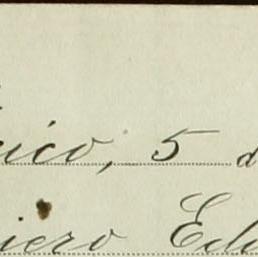 ico, 5 d
iero Edu